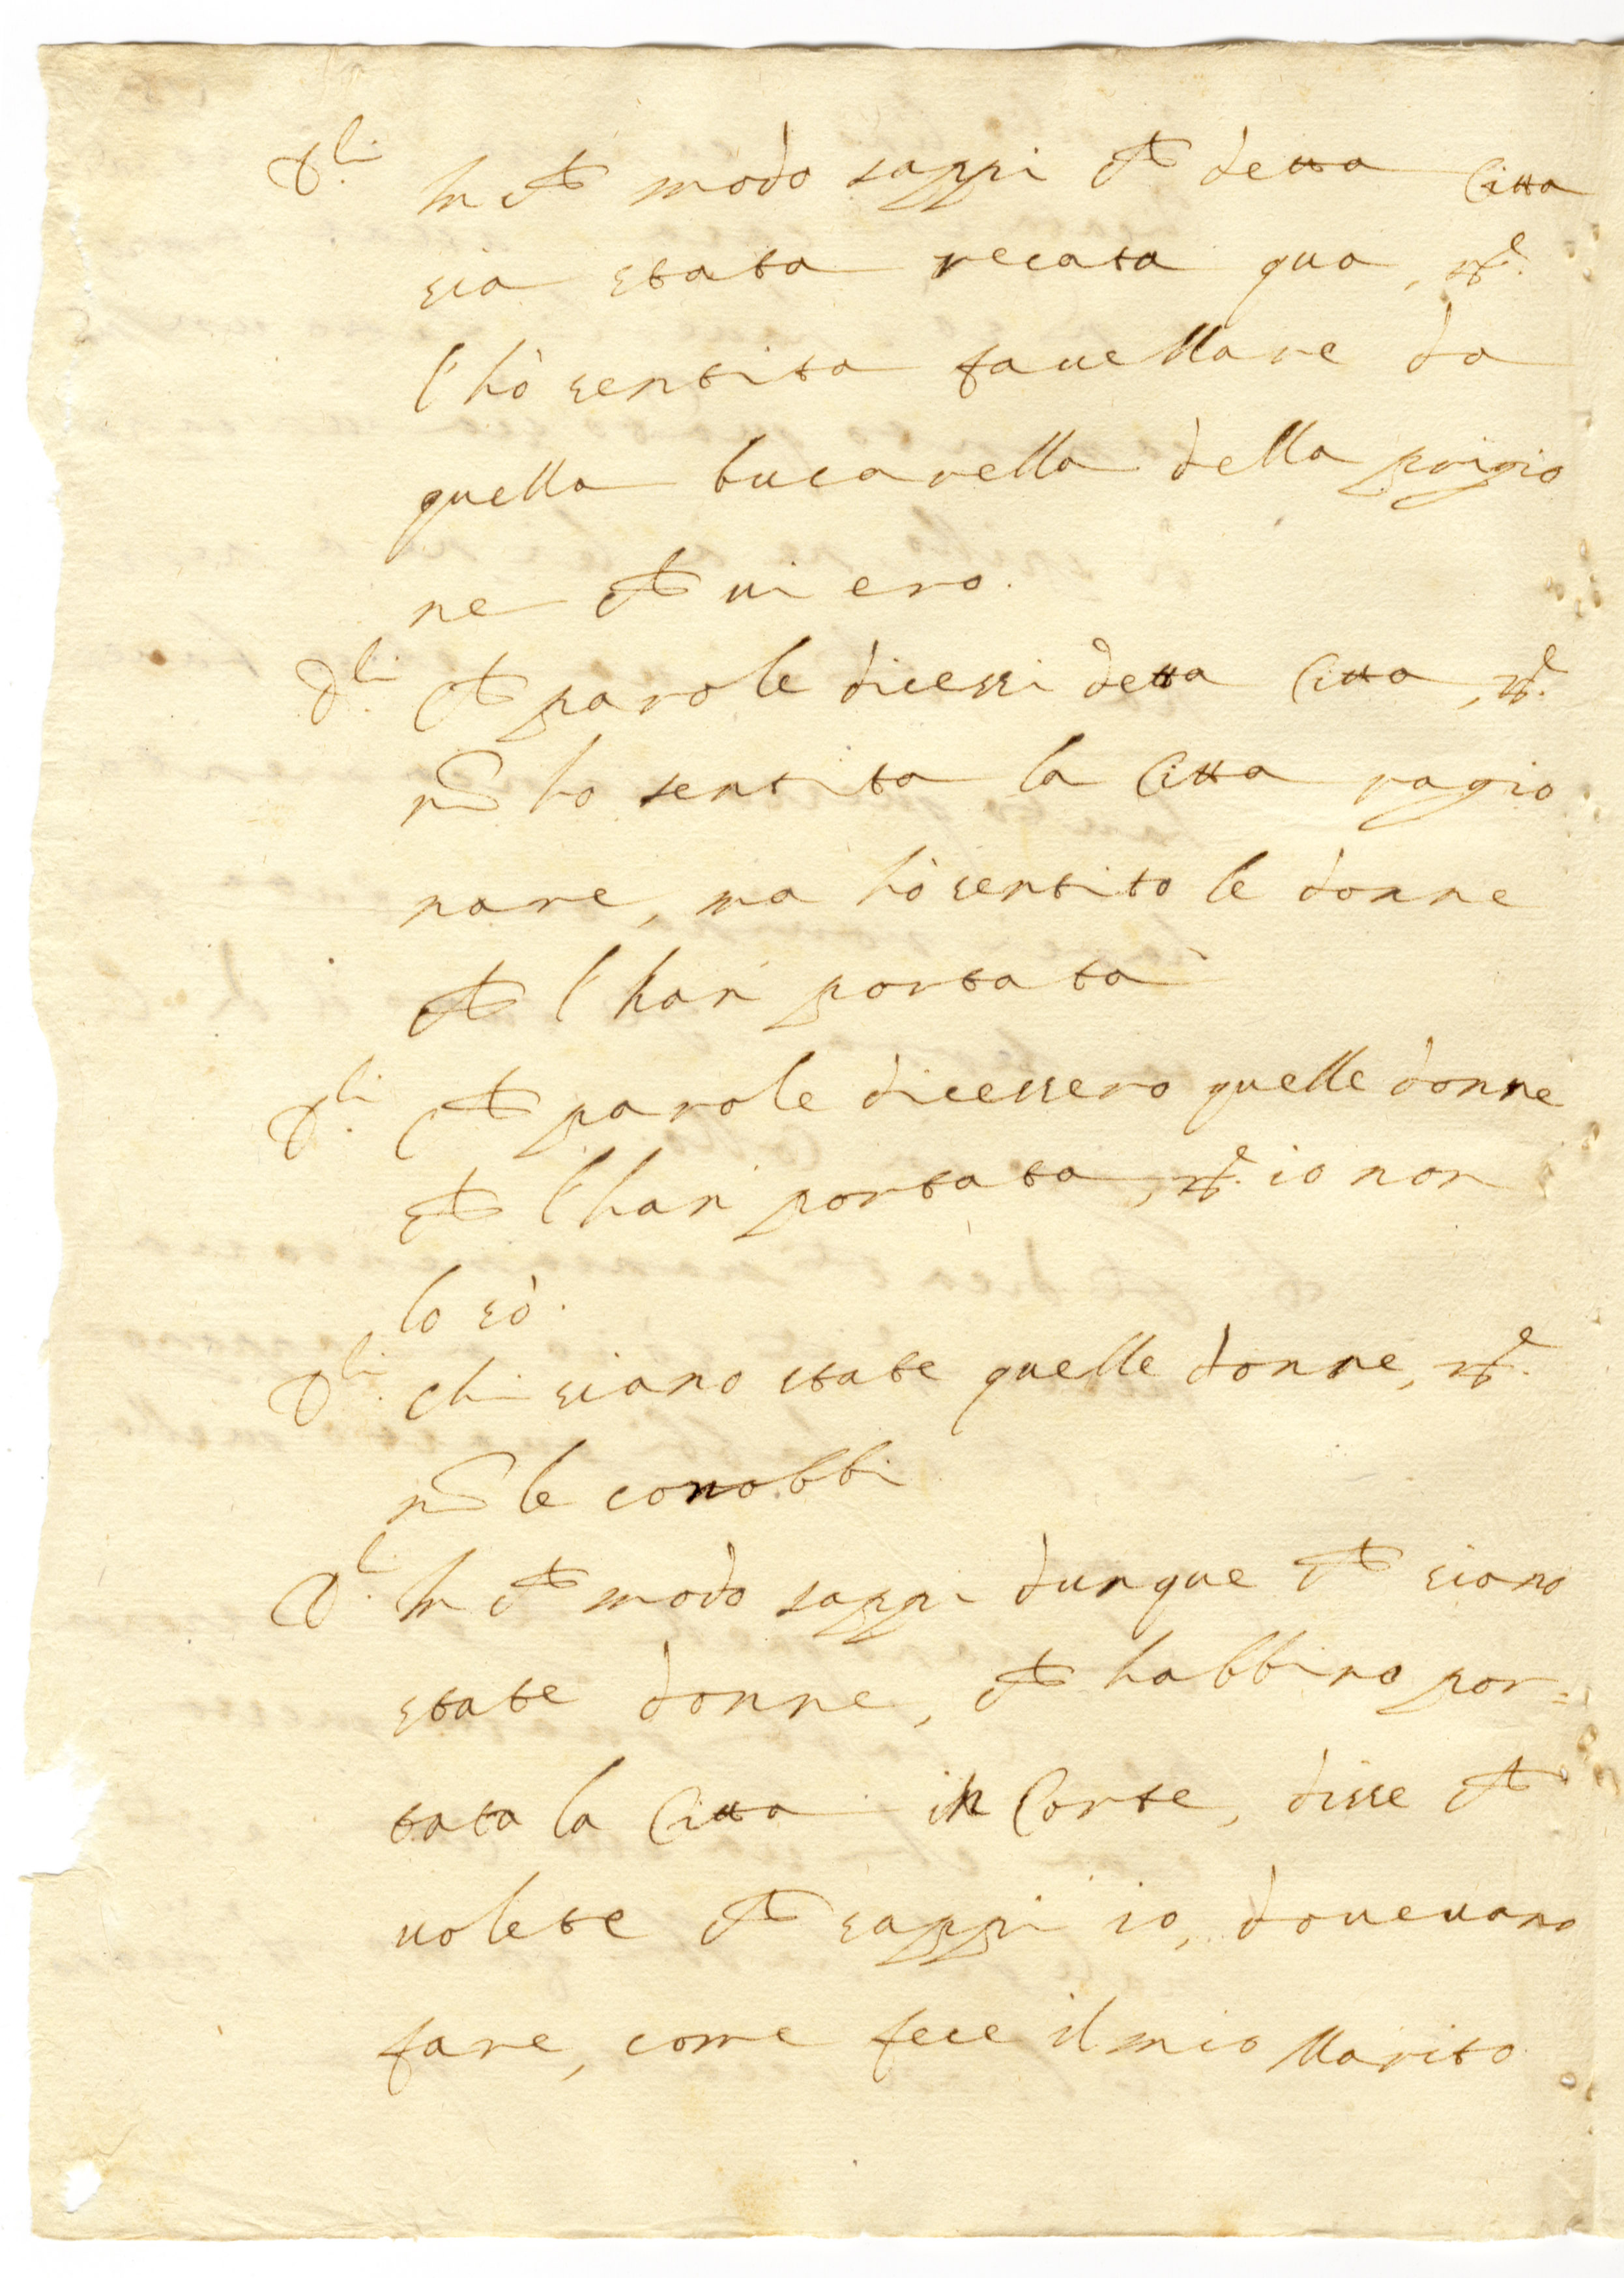 D.li In che modo sappi che detta Citta
sia stata recata qua, Rs.e
l'hò sentita fauellare da
quella bucarella della prigio
ne che ui ero.
D.li Che parole dicessi detta Citta, Rs.e
nō ho sentita la Citta ragio
nare, ma hò sentito le donne
che l'han portata
D.li Che parole dicessero quelle donne
che l'han portata, Rs.e io non
lo sò.
D.li Chi siano state quelle donne, Rs.e
nō le conobbi
D.li In che modo sappi dunque che siano
state donne, che habbino por=
tata la Citta in Corte, disse che
uolete che sappi io, doueuano
fare, come fece il mio Marito